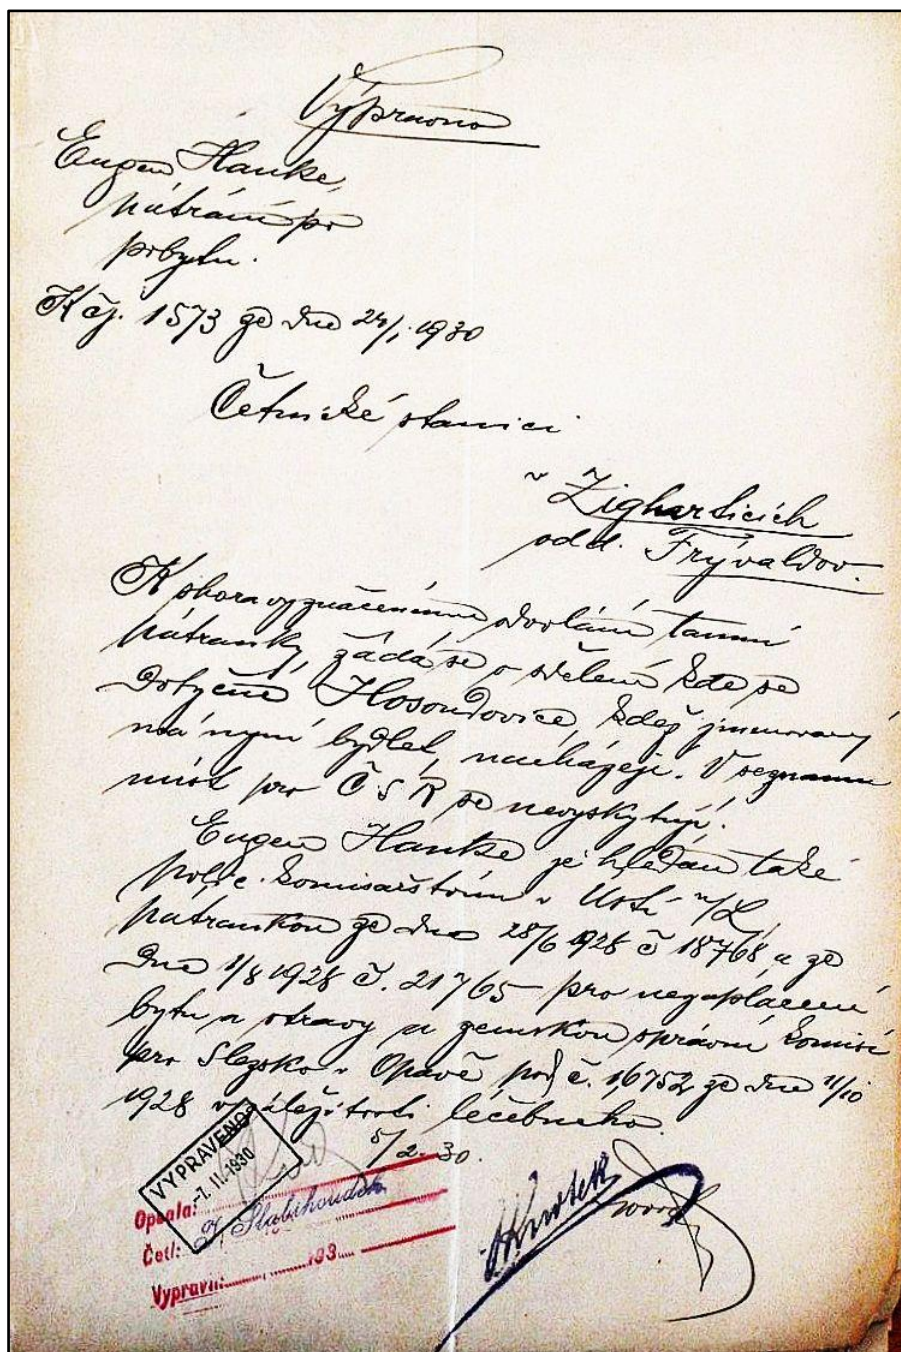 Výpravna
Eugen Hanke,
pátrání po
pobytu.
K čj. 1573 ze dne 24/1. 1930
Četnické stanici
v Zigharticích
odd. Frývaldov.
K shora vyznačenému odvolání tamní
pátranky, žádá se o sdělení kde se
dotyčné Hosondovice, kdež jmenovaný
má nyní bydlet, nacházejí. V seznamu
míst pro ČSR se nevyskytují.
Eugen Hanke je hledán také
polic. komisařstvím v Ústí n/L
pátrankou ze dne 28/6 1928 č 18768 a ze
dne 1/8 1928 č. 21765 pro nezaplacení
bytu a stravy a zemskou správní komisí
pro Slezsko v Opavě pod č. 16752 ze dne 11/10
1928 v záležitosti léčebného.
5/2. 30.
VYPRAVENO
-7. II. 1930
Opsala:
Četl:
Vypravil: 193